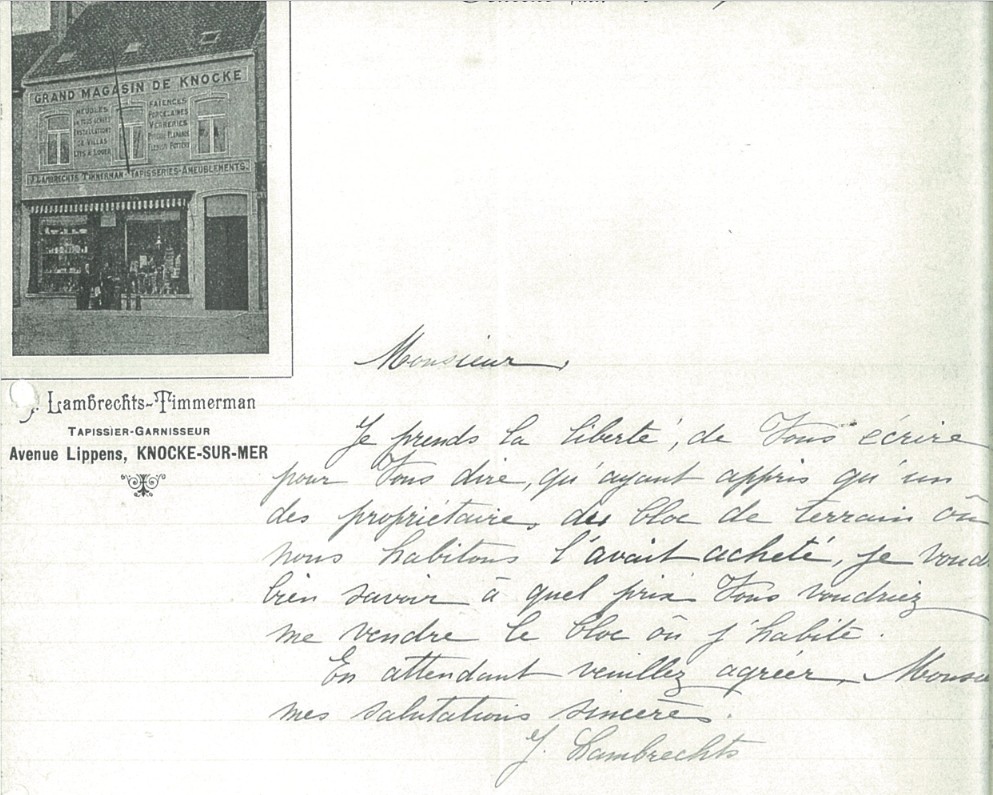 GRAND MAGASIN DE KNOCKE
MEUBLES
INSTALLATIONS
DE VILLAS
LITS A LOUER
FAÏENCES
PORCELAINES
VERRERIES
J. LAMBRECHTS TIMMERMAN-TAPISSERIES-AMEUBLEMENTS.
J. Lambrechts-Timmerman
TAPISSIER-GARNISSEUR
Avenue Lippens, KNOCKE-SUR-MER
Monsieur,
Je prends la liberté, de Vous écrire
pour Vous dire, qu'ayant appris qu'un
des propriétaires des bloc de terrain où
nous habitons l'avait acheté, je voud
bien savoir à quel prix Vous voudriez
me vendre le bloc où j'habite.
En attendant veuillez agréer, Monsi
mes salutations sincères.
J. Lambrechts